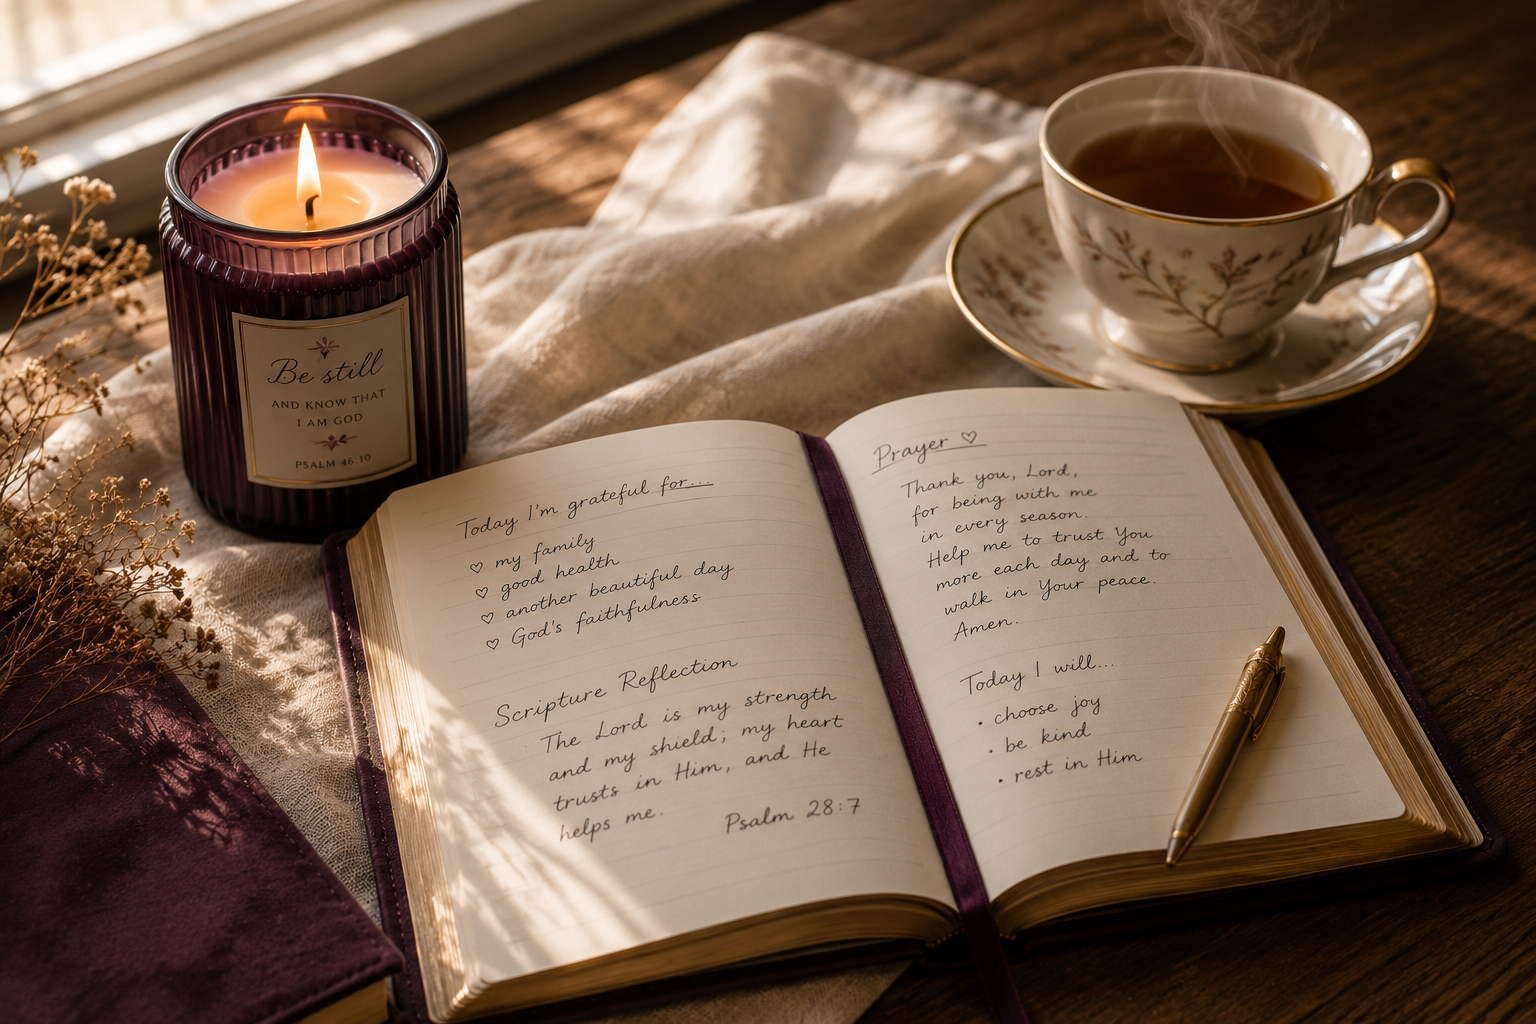 Be still
AND KNOW THAT
I AM GOD
PSALM 46:10
Today I'm grateful for...
♡ my family
♡ good health
♡ another beautiful day
♡ God's faithfulness
Scripture Reflection
The Lord is my strength
and my shield; my heart
trusts in Him, and He
helps me.
Psalm 28:7
Prayer ♡
Thank you, Lord,
for being with me
in every season.
Help me to trust You
more each day and to
walk in Your peace.
Amen.
Today I will...
• choose joy
• be kind
• rest in Him